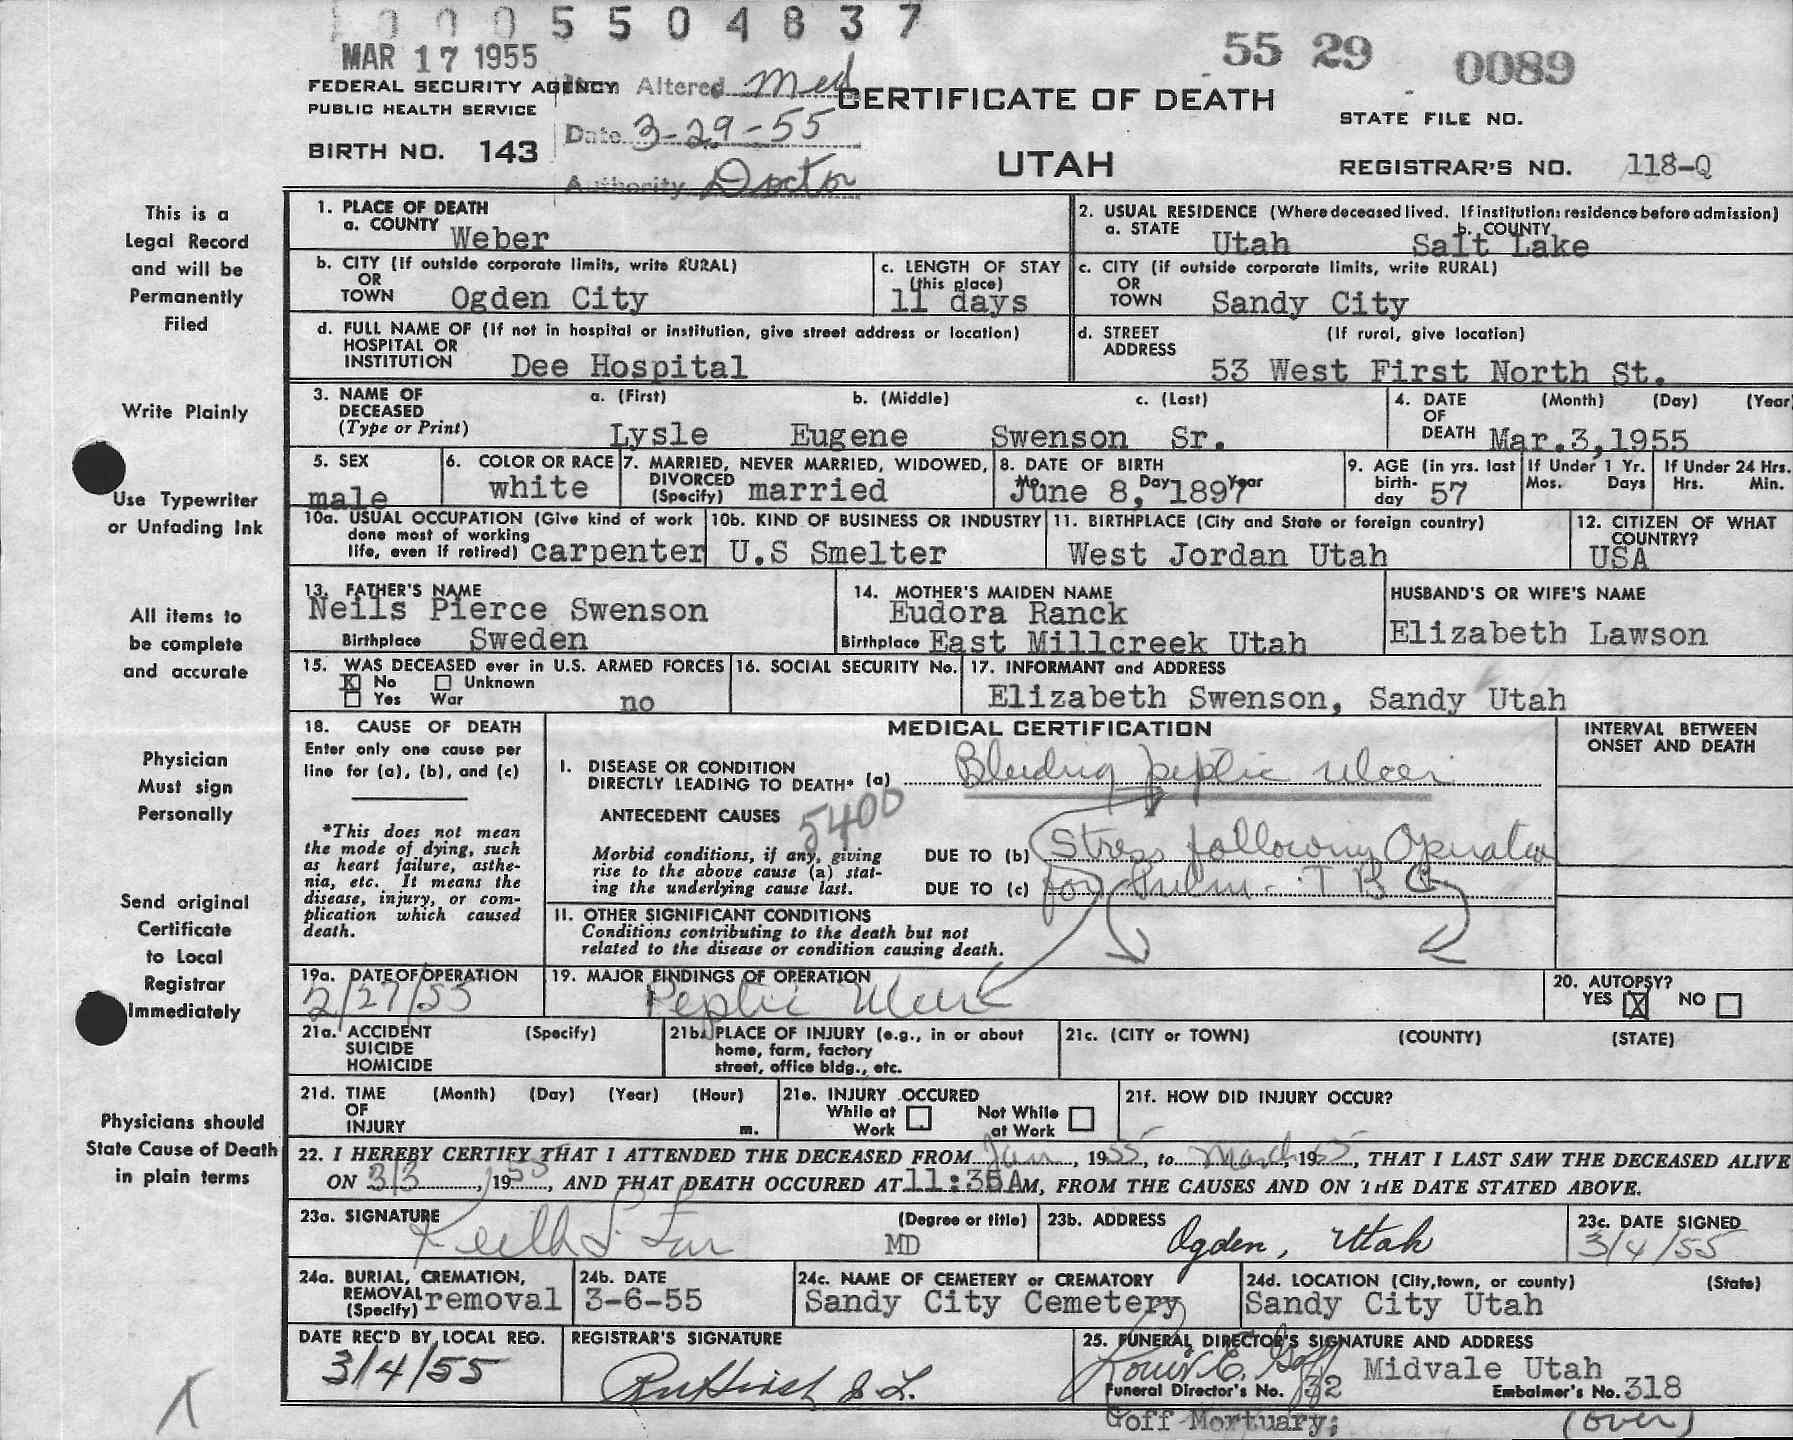 0005504837
MAR 17 1955
55 29 0089
FEDERAL SECURITY AGENCY
PUBLIC HEALTH SERVICE
Altered Med
CERTIFICATE OF DEATH
STATE FILE NO.
Date 3-29-55
BIRTH NO. 143
UTAH
REGISTRAR'S NO. 118-Q
Authority Doctor
This is a
Legal Record
and will be
Permanently
Filed
Write Plainly
Use Typewriter
or Unfading Ink
All items to
be complete
and accurate
Physician
Must sign
Personally
Send original
Certificate
to Local
Registrar
Immediately
Physicians should
State Cause of Death
in plain terms
1. PLACE OF DEATH
a. COUNTY Weber
2. USUAL RESIDENCE (Where deceased lived. If institution: residence before admission)
a. STATE Utah b. COUNTY Salt Lake
b. CITY (If outside corporate limits, write RURAL)
OR
TOWN Ogden City
c. LENGTH OF STAY
(this place)
11 days
c. CITY (if outside corporate limits, write RURAL)
OR
TOWN Sandy City
d. FULL NAME OF (If not in hospital or institution, give street address or location)
HOSPITAL OR
INSTITUTION Dee Hospital
d. STREET (If rural, give location)
ADDRESS
53 West First North St.
3. NAME OF a. (First) b. (Middle) c. (Last)
DECEASED
(Type or Print) Lysle Eugene Swenson Sr.
4. DATE (Month) (Day) (Year)
OF
DEATH Mar.3,1955
5. SEX
male
6. COLOR OR RACE
white
7. MARRIED, NEVER MARRIED, WIDOWED,
DIVORCED
(Specify) married
8. DATE OF BIRTH
Mo Day Year
June 8, 1897
9. AGE (in yrs. last
birth-
day 57
If Under 1 Yr.
Mos. Days
If Under 24 Hrs.
Hrs. Min.
10a. USUAL OCCUPATION (Give kind of work
done most of working
life, even if retired) carpenter
10b. KIND OF BUSINESS OR INDUSTRY
U.S Smelter
11. BIRTHPLACE (City and State or foreign country)
West Jordan Utah
12. CITIZEN OF WHAT
COUNTRY?
USA
13. FATHER'S NAME
Neils Pierce Swenson
Birthplace Sweden
14. MOTHER'S MAIDEN NAME
Eudora Ranck
Birthplace East Millcreek Utah
HUSBAND'S OR WIFE'S NAME
Elizabeth Lawson
15. WAS DECEASED ever in U.S. ARMED FORCES
X No Unknown
Yes War
no
16. SOCIAL SECURITY No.
17. INFORMANT and ADDRESS
Elizabeth Swenson, Sandy Utah
18. CAUSE OF DEATH
Enter only one cause per
line for (a), (b), and (c)
*This does not mean
the mode of dying, such
as heart failure, asthe-
nia, etc. It means the
disease, injury, or com-
plication which caused
death.
MEDICAL CERTIFICATION
I. DISEASE OR CONDITION
DIRECTLY LEADING TO DEATH* (a) Bleeding peptic ulcer
ANTECEDENT CAUSES
5400
Morbid conditions, if any, giving
rise to the above cause (a) stat-
ing the underlying cause last.
DUE TO (b) Stress following Operation
DUE TO (c) for Pulm- TBC
II. OTHER SIGNIFICANT CONDITIONS
Conditions contributing to the death but not
related to the disease or condition causing death.
INTERVAL BETWEEN
ONSET AND DEATH
19a. DATE OF OPERATION
2/27/55
19. MAJOR FINDINGS OF OPERATION
Peptic Ulcer
20. AUTOPSY?
YES X NO
21a. ACCIDENT (Specify)
SUICIDE
HOMICIDE
21b. PLACE OF INJURY (e.g., in or about
home, farm, factory
street, office bldg., etc.
21c. (CITY or TOWN) (COUNTY) (STATE)
21d. TIME (Month) (Day) (Year) (Hour)
OF
INJURY m.
21e. INJURY OCCURED
While at Work
Not While at Work
21f. HOW DID INJURY OCCUR?
22. I HEREBY CERTIFY THAT I ATTENDED THE DECEASED FROM Jan, 1955, to March, 1955, THAT I LAST SAW THE DECEASED ALIVE
ON 3/3, 1955, AND THAT DEATH OCCURED AT 11:35AM, FROM THE CAUSES AND ON THE DATE STATED ABOVE.
23a. SIGNATURE (Degree or title)
Keith MD
23b. ADDRESS
Ogden, Utah
23c. DATE SIGNED
3/4/55
24a. BURIAL, CREMATION,
REMOVAL
(Specify) removal
24b. DATE
3-6-55
24c. NAME OF CEMETERY or CREMATORY
Sandy City Cemetery
24d. LOCATION (City, town, or county) (State)
Sandy City Utah
DATE REC'D BY LOCAL REG.
3/4/55
REGISTRAR'S SIGNATURE
25. FUNERAL DIRECTOR'S SIGNATURE AND ADDRESS
Louis E. Goff Midvale Utah
Funeral Director's No. 132 Embalmer's No. 318
Goff Mortuary;
(over)